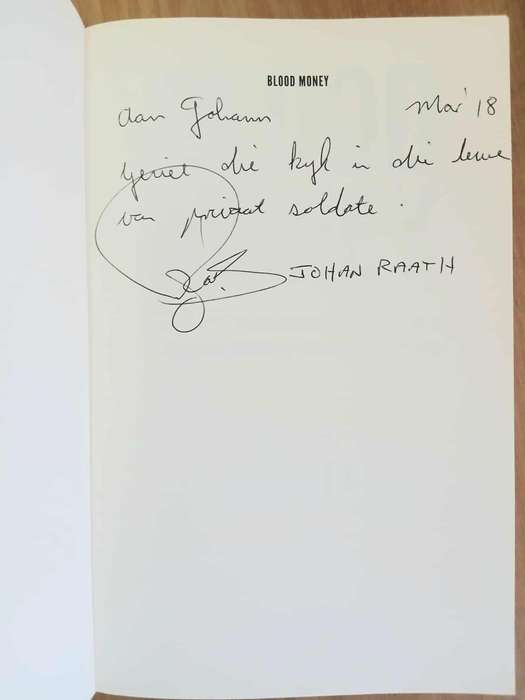 BLOOD MONEY
Aan Johann Mar '18
geniet die kyk in die lewe
van privaat soldate.
JOHAN RAATH